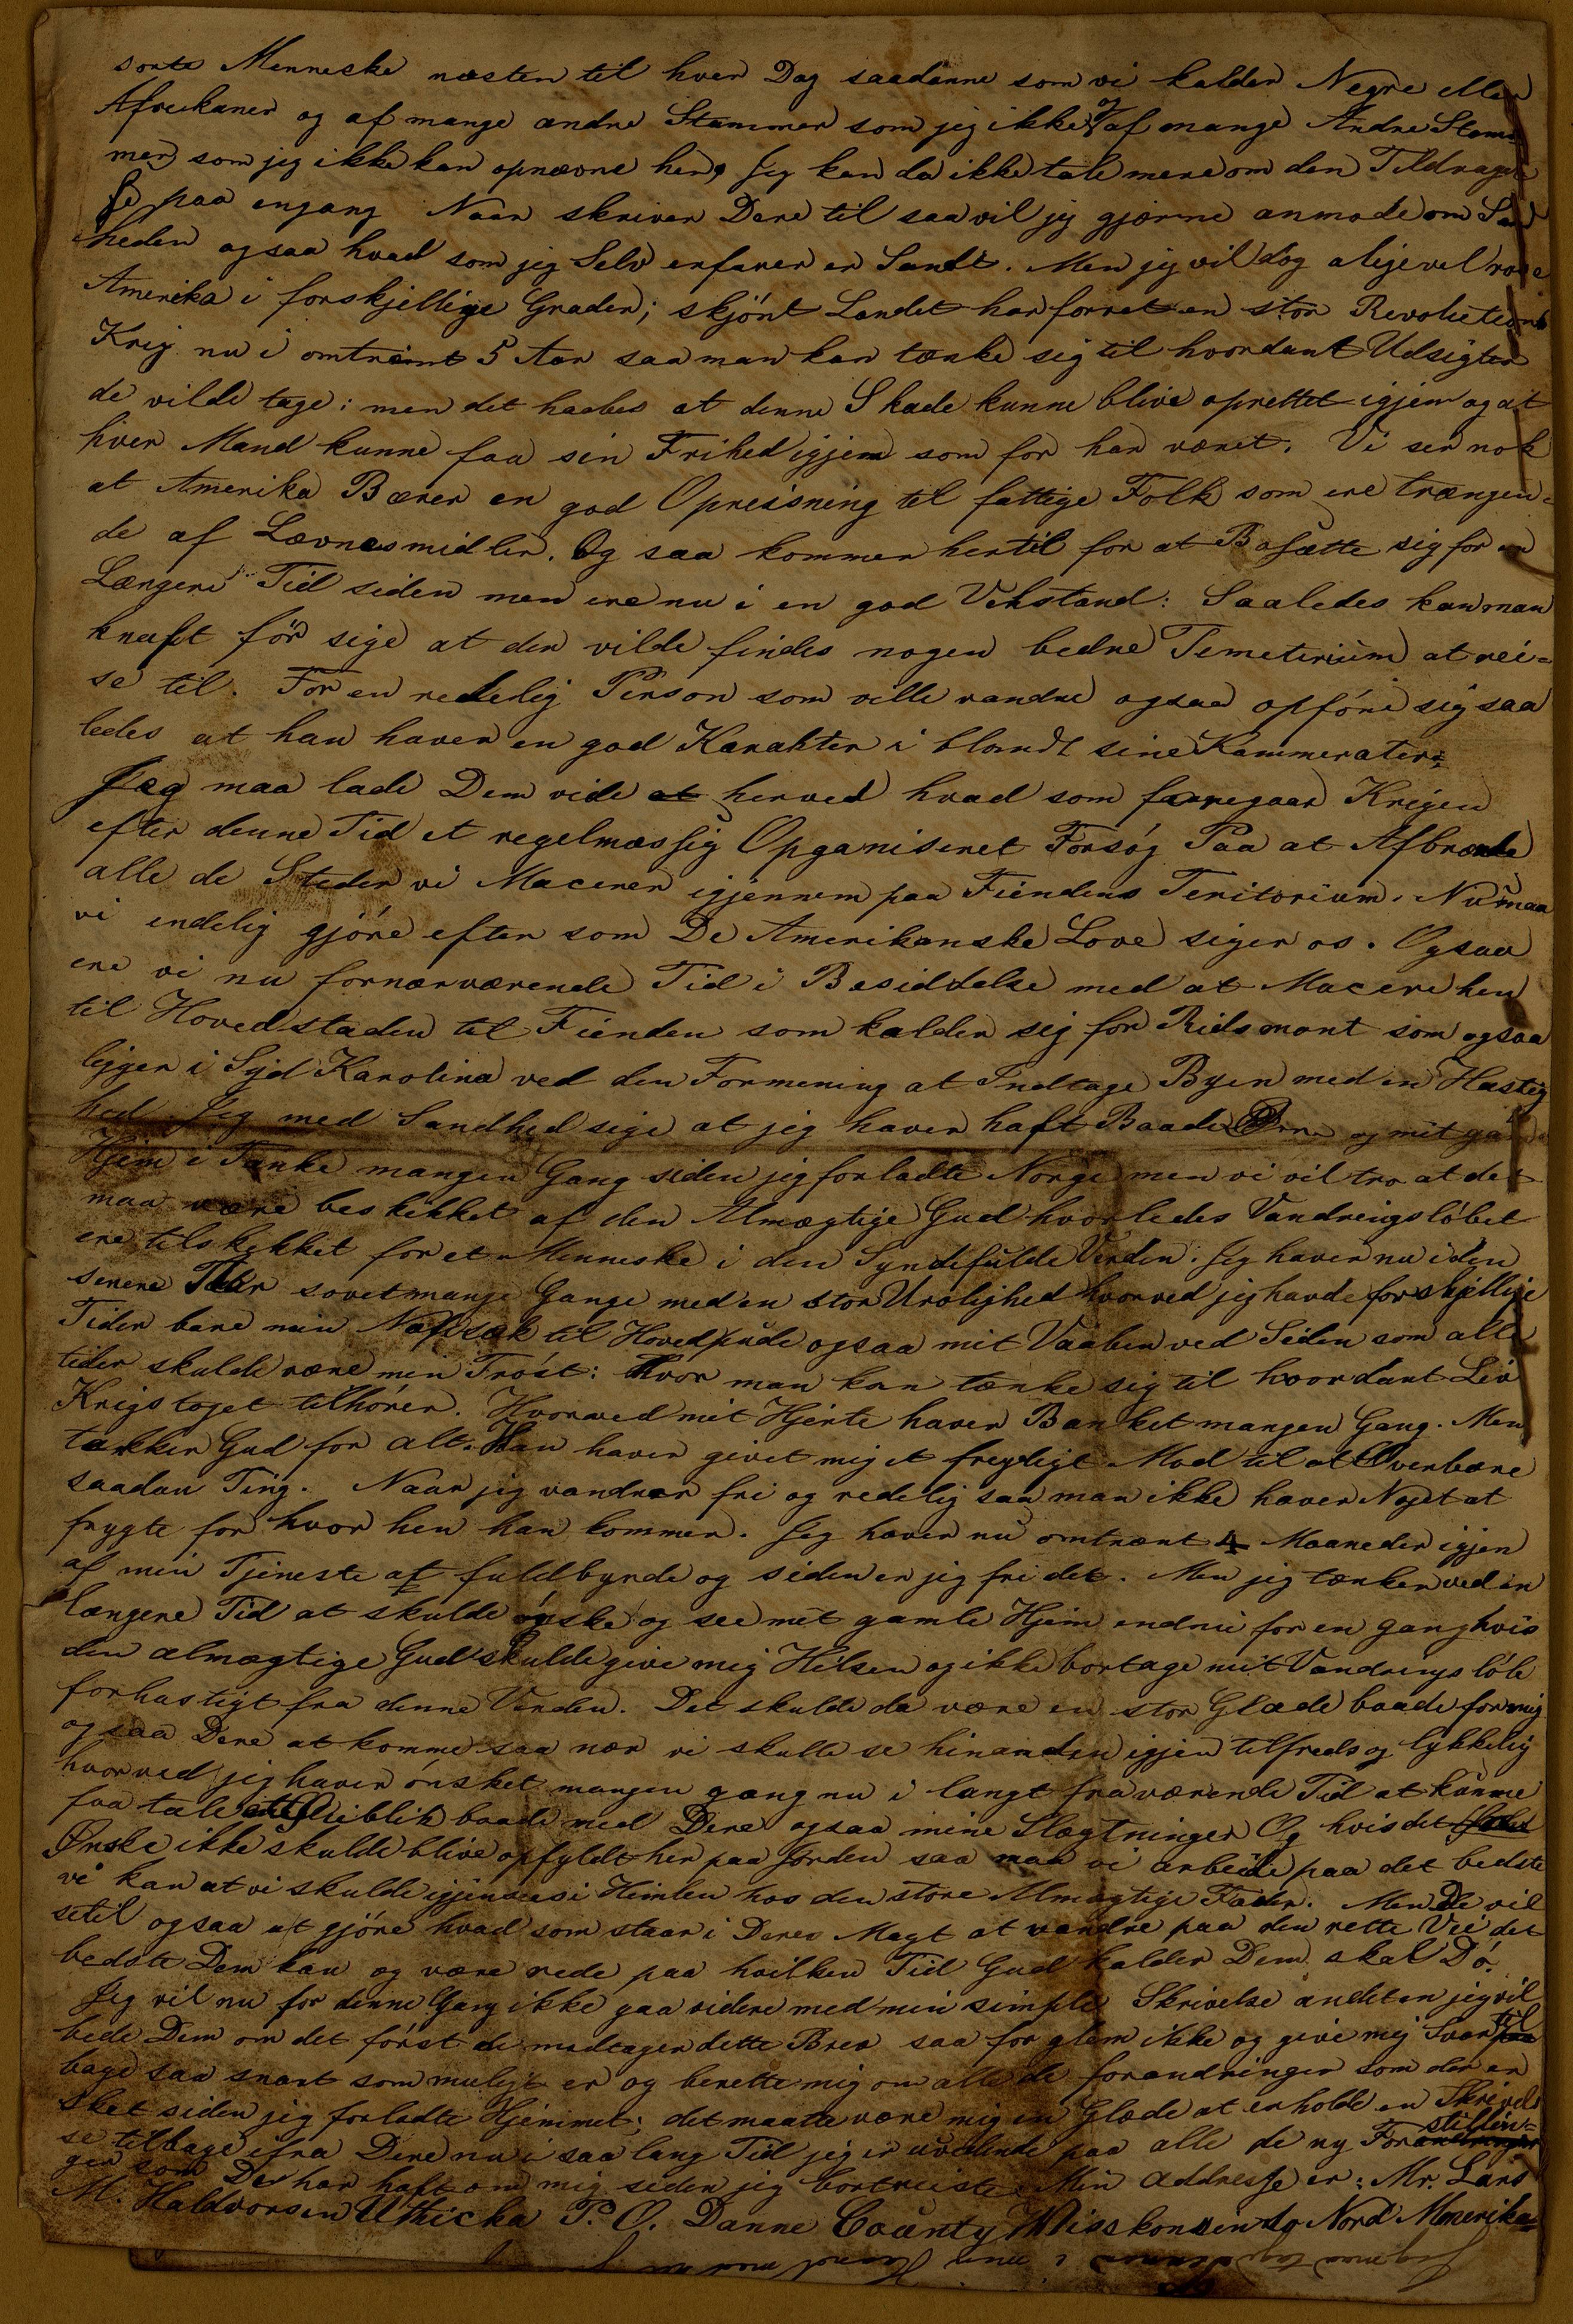 sorte Menneske næsten til hver Dag saadanne som vi kalder Negre eller
Afreekaner og af mange andre Stammer som jeg ikke og af mange Andre Stam
mer som jeg ikke kan opnævne her, Jeg kan da ikke tale mere om den Tildragel
se paa engang Naar skriver Dere til saa vil jeg gjærne anmode om Sand
heden ogsaa hvad som jeg Selv erfarer er Sandt. Men jeg vil dog aligevel rose
Amerika i forskjellige Grader; skjönt Landet har forret en stor Revolutions
Krig nu i omtrænt 5 Aar saa man kan tænke sig til hvordant Udsigter
de vilde tage; men det haabes at denne Skade kunne blive oprettet igjen og at
hver Mand kunne faa sin Frihed igjen som for har været. Vi ser nok
at Amerika Bærer en god Opreisning til fattige Folk som ere trængen=
de af Lævnesmidler. Og saa kommer hertil for at Besætte sig for en
Længere Tid siden men ere nu i en god Vehstand: Saaledes kan man
knapt för sige at der vilde findes nogen bedre Temeterium at rei=
se til. For en redelig Person som ville vandre ogsaa opföre sig saa
ledes at han haver en god Karakter i blandt sine Kammerater:
Jeg maa lade Dem vide at herved hvad som foregaar Krigen
efter denne Tid et regelmæssig Opganiseret Forsög Paa at Afbrænde
alle de Steder vi Macerer igjennem paa Fiendens Teritorium. Nu maa
vi endelig gjöre efter som De Amerikanske Love siger os. Ogsaa
ere vi nu fornærværende Tid i Besiddelse med at Macere hen
til Hovedstaden til Fienden som kalder sig for Ridsmont som ogsaa
ligger i Syd Karolina ved den Formening at Indtage Byen med en Hastig
hed Jeg med Sandhed sige at jeg haver haft Baade Dere og mit gamle
Hjem i Tanke mangen Gang siden jeg forladte Norge men vi vil tro at det
maa være beskikket af den Almægtige Gud hvorledes Vandreigslöbet
ere tilskykket for et Menneske i den Syndefulde Verden. Jeg haver nu i den
senere Tider sovet mange Gange med en stor Urolighed hvorved jeg havde forskjellige
Tider bare min Napsæk til Hovedpude ogsaa mit Vaaben ved Siden som alle
tider skulde være min Tröst: Hvor man kan tænke sig til hvordant Liv
Krigstoget tilhörer. Hvorved mit Hjerte haver Banket mangen Gang. Men
takker Gud for alt. Han haver givet mig et freydigt Mod til at Overbære
saadan Ting. Naar jeg vandrer fri og redelig saa man ikke haver Noget at
frygte for hvor hen han kommer. Jeg haver nu omtrænt 4 Maaneder igjen
af min Tjeneste at fuldbyrde og siden er jeg fri det. Men jeg tænker ved en
længere Tid at skulde önske og see mit gamle Hjem endnu for en gang hvis
den almægtige Gud skulde give mig Hilsen og ikke bortage mit Vandrings löb
forhastigt fra denne Verden. Det skulde da være en stor Glæde baade for mig
ogsaa Dere at komme saa nær vi skulle se hinanden igjen tilfreds og lykkelig
hvorved jeg haver önsket mangen gang nu i langt fraværende Tid at kunne
faa tale et Öieblik baade med Dere ogsaa mine Slægtninger Og hvis det
Önske ikke skulde blive opfyldt her paa Jorden saa maa vi arbeide paa det bedste
vi kan at vi skulde igjensees i Himlen hos den store Almægtige Fader. Men De vil
setil ogsaa at gjöre hvad som staar i Deres Magt at vandre paa den rette Vei det
bedste Dem kan og være rede paa hvilken Tid Gud kalder Dem skal Dö.
Jeg vil nu for denne Gang ikke gaa videre med min simple Skrivelse andet en jeg vil
bede Dem om det först de modtager dette Brev saa for glem ikke og give mig Svar til
bage saa snart som muligt er og berette mig om alle de forandringer som der er
sket siden jeg forladte Hjemmet; det maatte være mig en Glæde at erholde en Skrivel
se tilbage ifra Dere nu i saa lang Tid jeg er uvidende paa alle de ny Forestillin=
ger som De har haft om mig siden jeg bortreiste Min Addresse er: Mr. Lars
M. Haldvorsen Uthicka P. O. Danne County Wisskonsin Nord Amerika